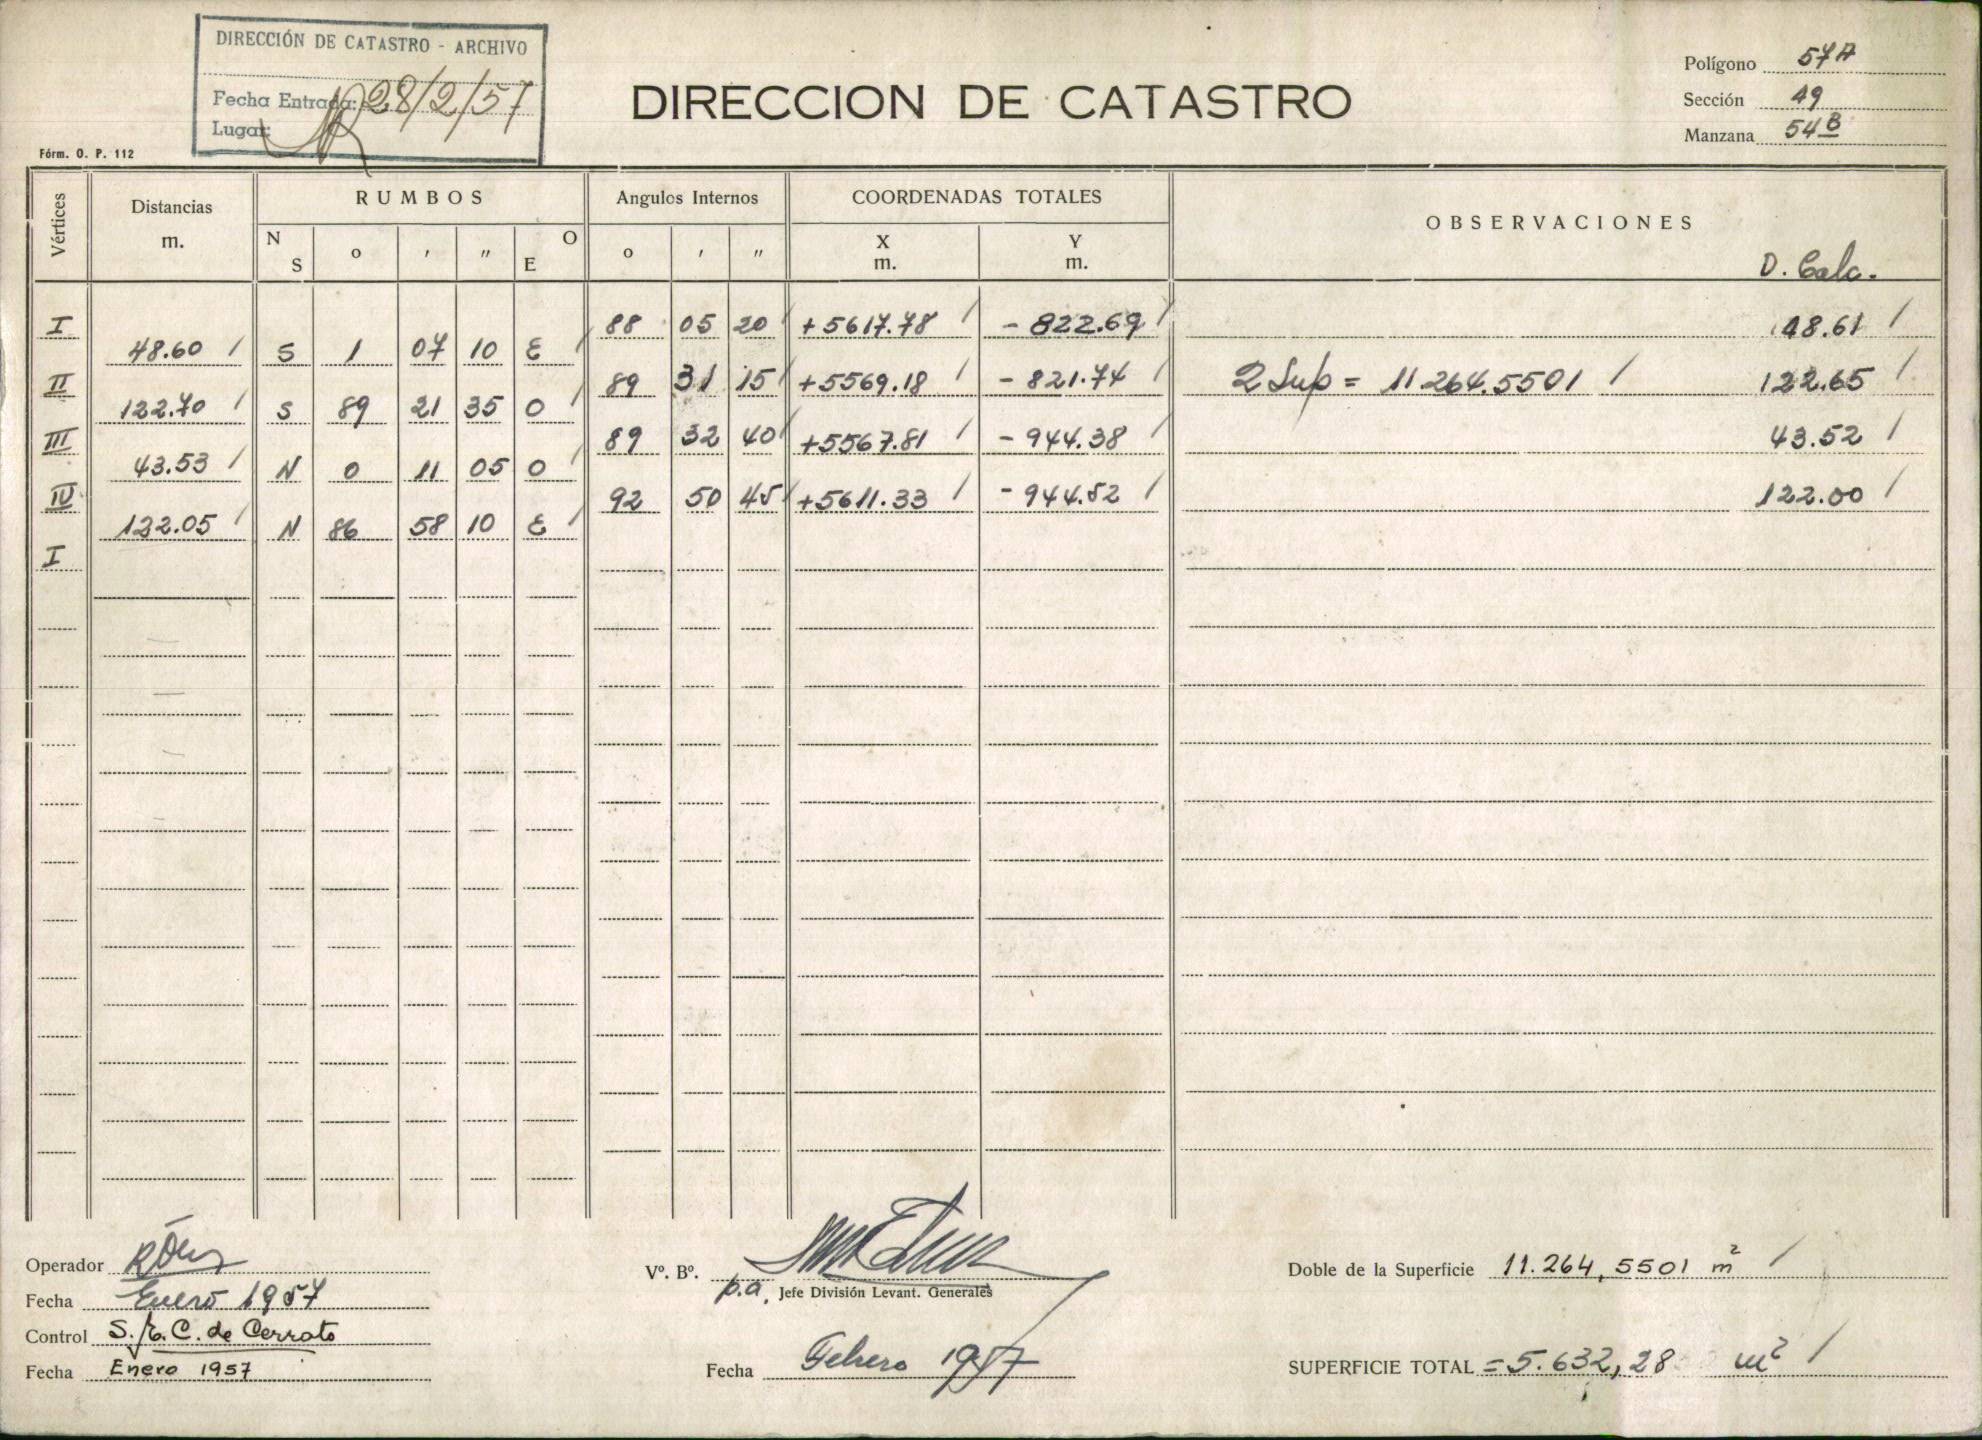 DIRECCIÓN DE CATASTRO - ARCHIVO
Fecha Entrada: 28/2/57
Lugar:
Fórm. O. P. 112
DIRECCION DE CATASTRO
Polígono 57A
Sección 49
Manzana 54B
Vértices Distancias m. RUMBOS Angulos Internos COORDENADAS TOTALES OBSERVACIONES
N S ° ' " O E ° ' " X m. Y m. D. Calc.
I 88 05 20 +5617.78 -822.69 48.61
48.60 S 1 07 10 E
II 89 31 15 +5569.18 -821.74 2 Sup = 11.264.5501 122.65
122.70 S 89 21 35 O
III 89 32 40 +5567.81 -944.38 43.52
43.53 N 0 11 05 O
IV 92 50 45 +5611.33 -944.52 122.00
122.05 N 86 58 10 E
I
Operador
Fecha Enero 1957
Control S. E. C. de Cerrato
Fecha Enero 1957
Vº. Bº.
p.a. Jefe División Levant. Generales
Fecha Febrero 1957
Doble de la Superficie 11.264,5501 m²
SUPERFICIE TOTAL = 5.632,28 m²